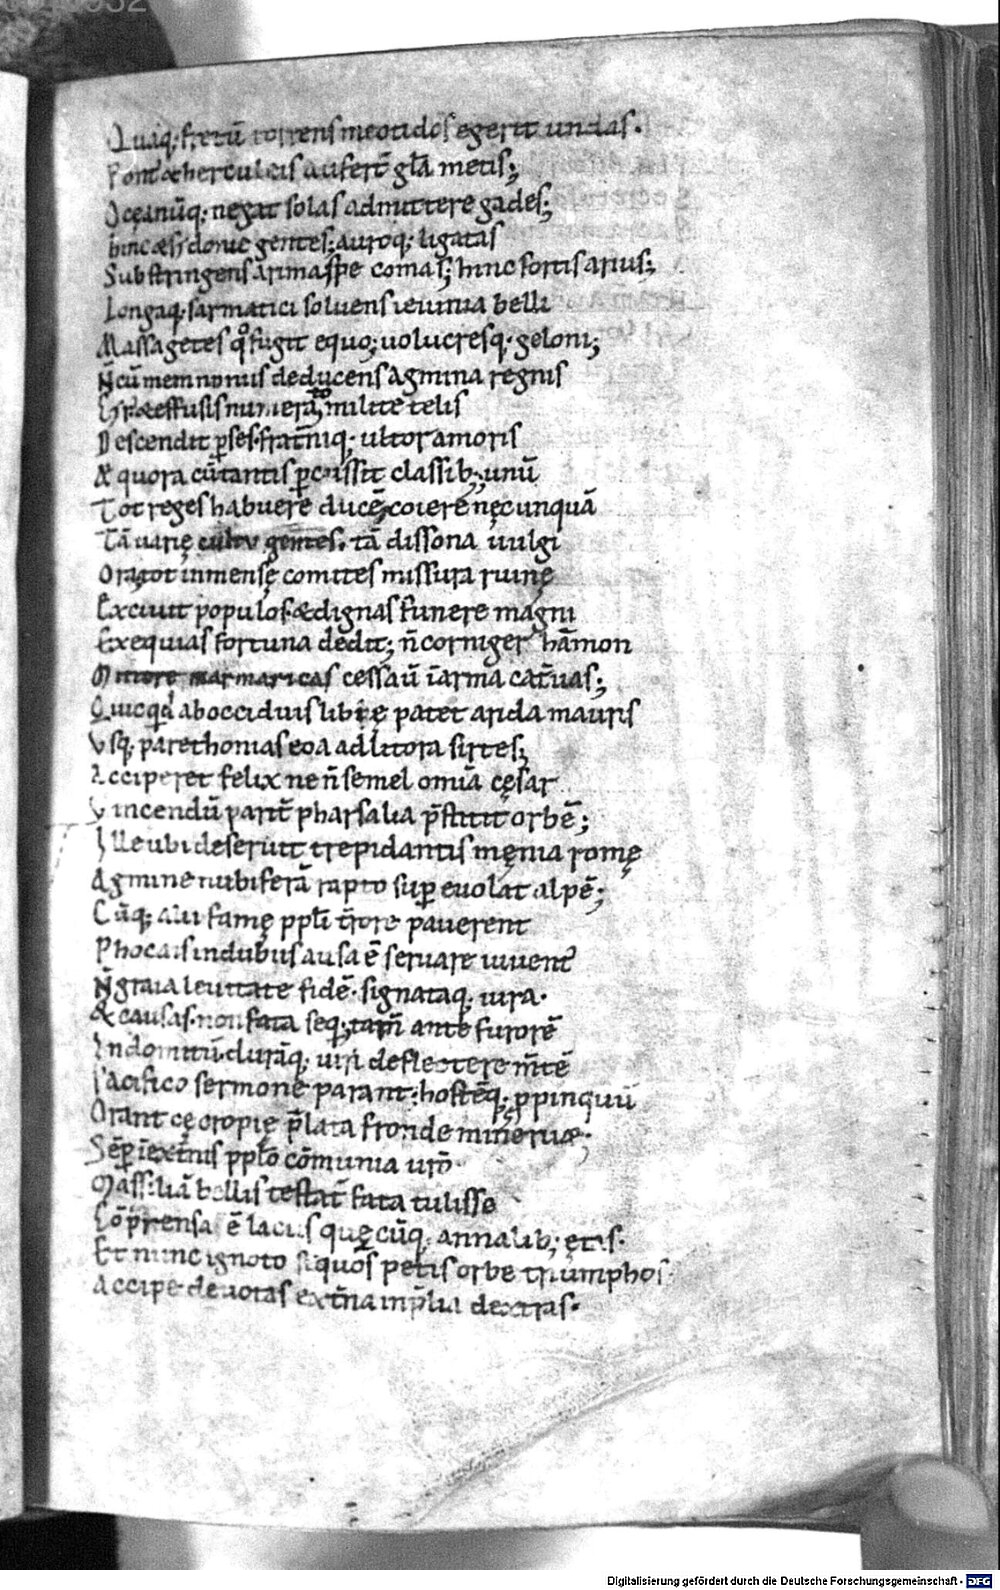 Quaq; fretū torrens meotidos egerit undas.
Pont &herculeis aufert̄ gl̄a metis;
Oceanūq; negat solas admittere gades;
hinc &sydonie gentes; auroq; ligatas
Substringens arimaspe comas; hinc fortis arius;
Longaq; sarmatici soluens ieiunia belli
Massagetes q̊ fugit equo; uolucresq; geloni;
N̄ cū memnoniis deducens agmina regnis
&effusis milite telis
Descendit p̱ses. frat̄niq; ultor amoris
&quora cū tantis p̱cussit classib; unū
Tot reges habuere ducē; coiere nec unquā
Tā uarię cultu gentes. tā dissona uulgi
Ora; tot inmensę comites missura ruinę
Exciuit populos. &dignas funere magni
Exequias fortuna dedit; n̄ corniger hāmon
Mittere marmaricas cessaū īarma cat̄uas;
Quicqd aboccidius libię patet arida mauris
Vsq; parethonias eoa adlitora sirtes;
Acciperet felix ne n̄ semel omīa cęsar
Vincendū parit̄ pharsalia p̄stitit orbē;
Ille ubi deseruit trepidantis męnia romę
Agmine nubiferā rapto sup̱ euolat alpē;
Cūq; alii famę ppl̄i t̄rore pauerent
Phocais indubiis ausa ē seruare iuuent᷑
N̄ graia leuitate fidē. signataq; iura.
&causas. non fata seq; tam̄ ante furorē
Indomitū. durāq; uiri deflectere m̄tē
Pacifico sermone parant. hostēq; ppinquū
Orant cęcropię p̄lata fronde mineruæ.
Sēp̱ īext̄nis pplo cōmunia ur̄o
Massiliā bellis testat̄ fata tulisse
Cōp̄rensa ē lacius quęcūq; annalib; ętas.
Et nunc ignoto siquos petis orbe triumphos.
Accipe deuotas ext̄na inp̄lia dextras.
Digitalisierung gefördert durch die Deutsche Forschungsgemeinschaft - DFG